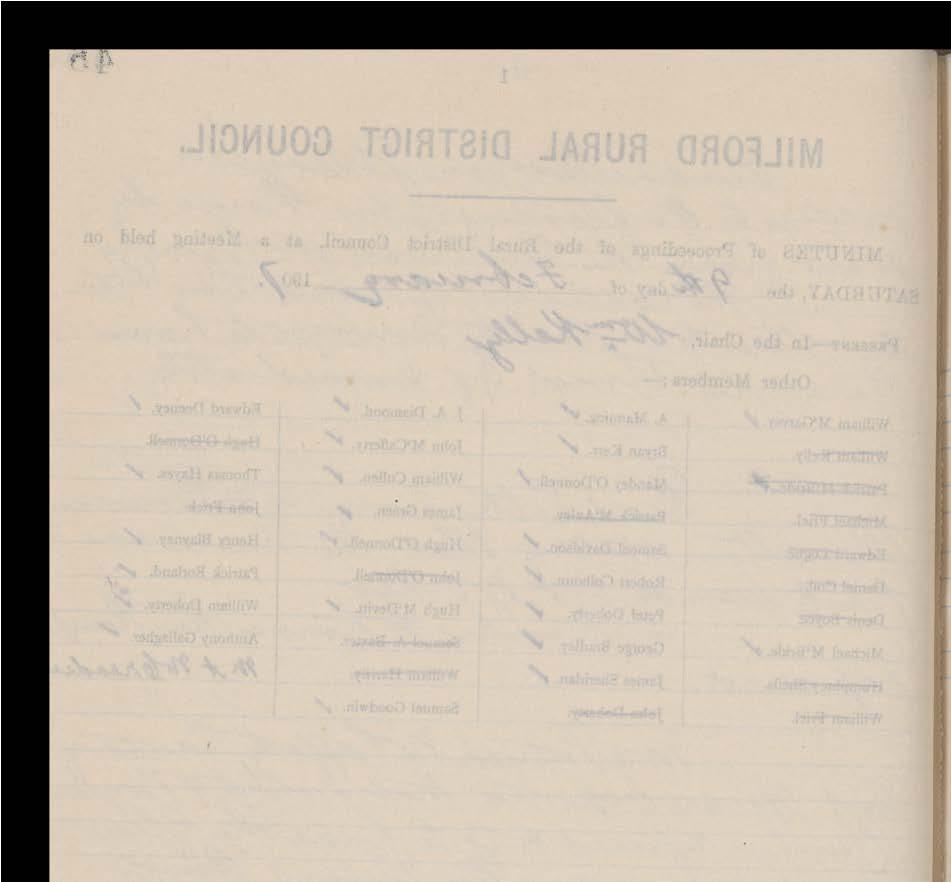 45
1
MILFORD RURAL DISTRICT COUNCIL.
MINUTES of Proceedings of the Rural District Council, at a Meeting held on
SATURDAY, the 9th day of February 1907.
PRESENT—In the Chair, Wm Kelly
Other Members :—
William M'Garvey. ✓
William Kelly.
Patrick M'Bride.
Michael Friel.
Edward Logue.
Daniel Coll.
Denis Boyce.
Michael M'Bride. ✓
Humphrey Sheils.
William Friel.
A. Manning. ✓
Bryan Kerr. ✓
Mandey O'Donnell. ✓
Patrick M'Auley.
Samuel Davidson. ✓
Robert Colhoun. ✓
Peter Doherty. ✓
George Bradley. ✓
James Sheridan. ✓
John Doheney.
J. A. Diamond. ✓
John M'Cafferty. ✓
William Cullen. ✓
James Green. ✓
Hugh O'Donnell. ✓
John O'Donnell.
Hugh M'Devitt. ✓
Samuel A. Baxter.
William Harvey.
Samuel Goodwin. ✓
Edward Deeney. ✓
Hugh O'Donnell.
Thomas Hayes. ✓
John Frick.
Henry Blayney. ✓
Patrick Borland. ✓
William Doherty. ✓
Anthony Gallagher. ✓